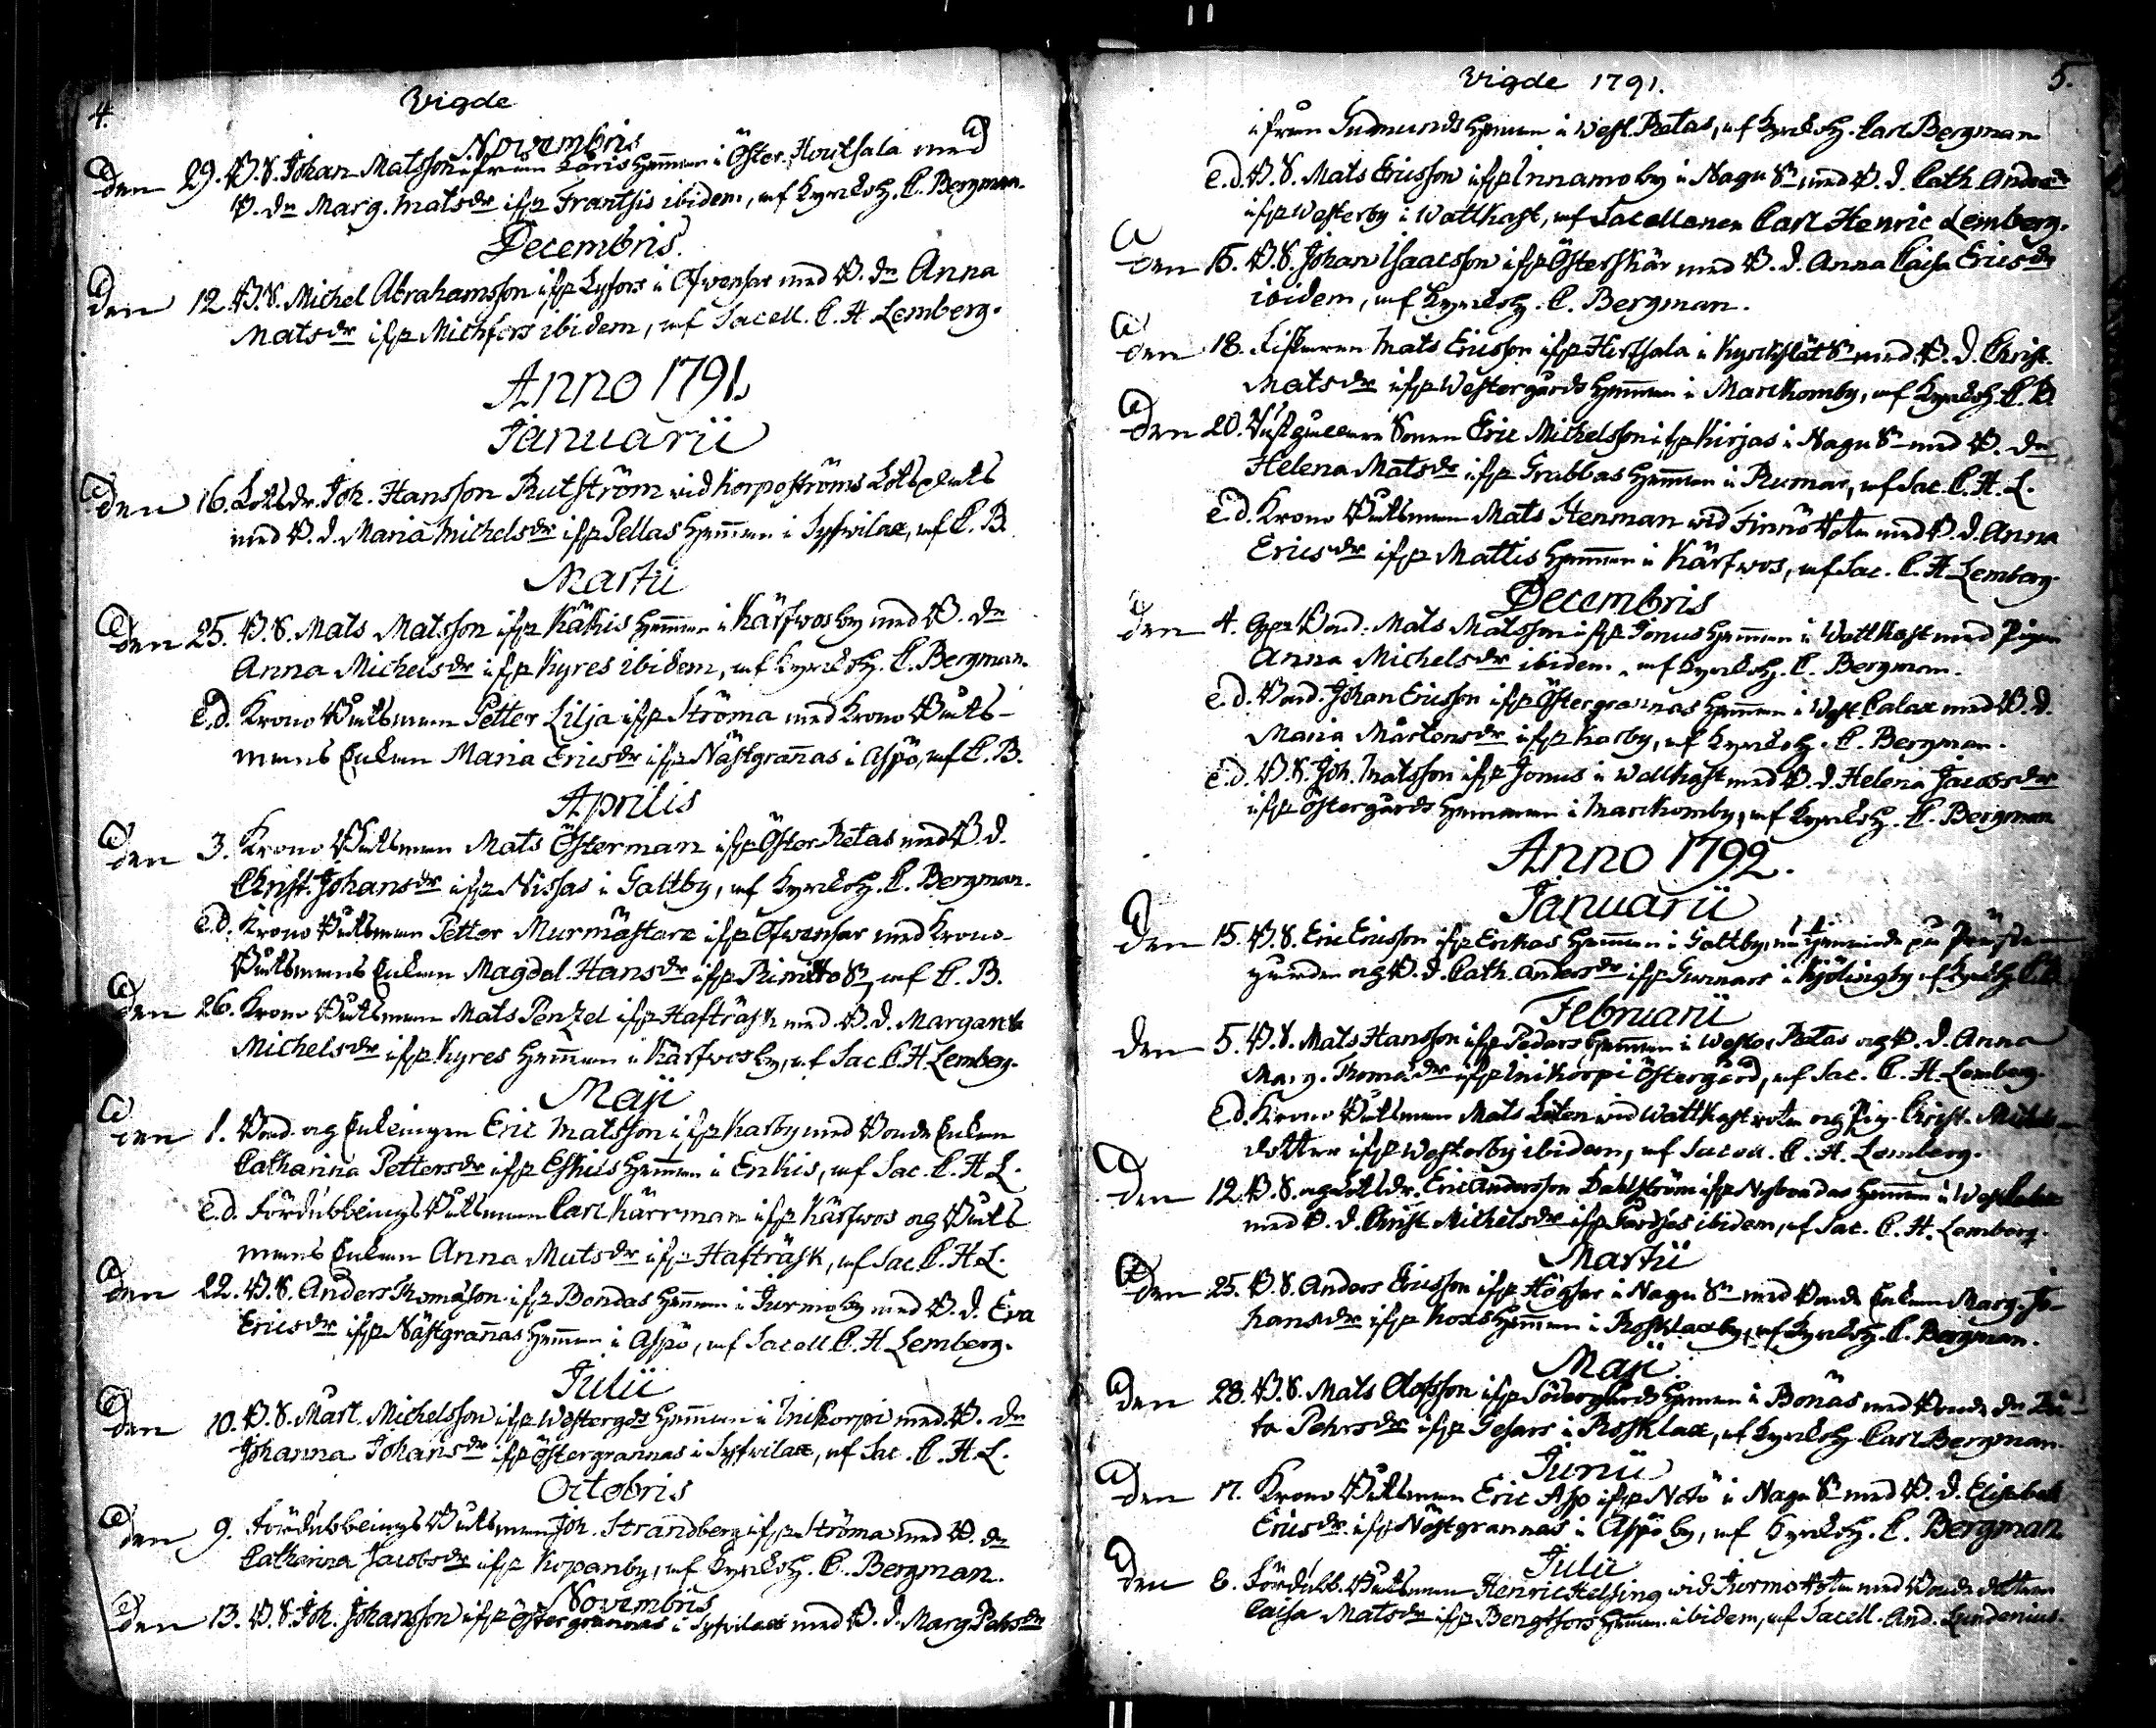 4.
Vigde
Novembris
Den 29. B. S. Johan Matsson ifrån Laris Hemman i Öster Houtsala med
B. dn Marg. Matsdr ifp Frantsis ibidem, af Kyrckoh. C. Bergman.
Decembris.
Den 12. B. S. Michel Abrahamsson ifp Lysors i Ofwensor med B. dn Anna
Matsdr ifp Michfors ibidem, af Sacell. C. H. Lemberg.
Anno 1791.
Januarii
Den 16. Lotsdr. Joh. Hansson Rutström vid Korpoströms Lotsplats
med B. d. Maria Michelsdr ifp Pellas Hemman i Syfvilax, af C. B.
Martii
Den 25. B. S. Mats Matsson ifp Käkis Hemman i Kärfwos by med B. dn
Anna Michelsdr ifp Kyres ibidem, af Kyrckoh. C. Bergman.
e.d. Krono Båtsman Petter Lilja ifp Ströma med Krono Båts-
mans Enkan Maria Ericsdr ifp Nästgrannas i Aspö, af C. B.
Aprilis
Den 3. Krono Båtsman Mats Österman ifp Öster Retas med B. d.
Christ. Johansdr ifp Nissas i Galtby, af Kyrckoh. C. Bergman.
e.d. Krono Båtsman Petter Murmästare ifp Ofwensor med Krono-
Båtsmans Enkan Magdal. Hansdr ifp Rimitto Sn, af C. B.
Den 26. Krono Båtsman Mats Penzel ifp Hafträsk med B. d. Margareta
Michelsdr ifp Kyres Hemman i Kärfwos by, af Sac. C. H. Lemberg.
Maji
Den 1. Bond. og Enklingen Eric Matsson ifp Karby med Bonde Enkan
Catharina Pettersdr ifp Eskils Hemman i Enkis, af Sac. C. H. L.
e.d. Fördubblings Båtsman Carl Kärrman ifp Kärfwos og Båts
mans Enkan Anna Matsdr ifp Hafträsk, af Sac. C. H. L.
Den 22. B. S. Anders Thomasson ifp Bondas Hemman i Jurmo by med B. d. Eva
Ericsdr ifp Nästgrannas Hemman i Aspö, af Sacell. C. H. Lemberg.
Julii
Den 10. B. S. Mårt. Michelsson ifp Westergds Hemman i Iniskorpi med B. dn
Johanna Johansdr ifp Östergrannas i Syfvilax, af Sac. C. H. L.
Octobris
Den 9. Fördubblings Båtsman Joh. Strandberg ifp Ströma med B. dn
Catharina Jacobsdr ifp Kopanby, af Kyrckoh. C. Bergman.
Novembris
Den 13. B. S. Joh. Johansson ifp Östergrannas i Syfvilax med B. d. Marg. Pehrsdr
5.
Vigde 1791.
ifrån Gudmunds Hemman i West. Retas, af Kyrckoh. Carl Bergman
e.d. B. S. Mats Ericsson ifp Innamo by i Nagu Sn med B. d. Cath. Andersdr
ifp Westerby i Wattkast, af Sacellanen Carl Henric Lemberg.
Den 15. B. S. Johan Isaacsson ifp Österskär med B. d. Anna Caisa Ericsdr
ibidem, af Kyrckoh. C. Bergman.
Den 18. Fiskaren Mats Ericsson ifp Hirtsala i Kyrckslät Sn med B. d. Christ.
Matsdr ifp Westergårds Hemman i Marckomby, af Kyrckoh. C. B.
Den 20. Sonen Eric Michelsson ifp Kirjas i Nagu Sn med B. dn
Helena Matsdr ifp Grabbas Hemman i Rumar, af Sac. C. H. L.
e.d. Krono Båtsman Mats Stenman vid Finnö Rotan med B. d. Anna
Ericsdr ifp Mattis Hemman i Kärfwos, af Sac. C. H. Lemberg.
Decembris
Den 4. Bond. Mats Matsson ifp Jonus Hemman i Wattkast med Pigan
Anna Michelsdr ibidem, af Kyrckoh. C. Bergman.
e.d. Bond. Johan Ericsson ifp Östergrannas Hemman i West. Calax med B. d.
Maria Mårtensdr ifp Karby, af Kyrckoh. C. Bergman.
e.d. B. S. Joh. Matsson ifp Jonus i Wattkast med B. d. Helena Jacobsdr
ifp Östergårds Hemman i Marckomby, af Kyrckoh. C. Bergman
Anno 1792.
Januarii
Den 15. B. S. Eric Ericsson ifp Erikas Hemman i Galtby, på Präste-
gården og B. d. Cath. Andersdr ifp Gunnars i Kjölingby af Kyrckoh. C. B.
Februarii
Den 5. B. S. Mats Hansson ifp Peders Hemman i Wester Retas og B. d. Anna
Marg. Thomasdr ifp Iniskorpi Östergård, af Sac. C. H. Lemberg.
e.d. Krono Båtsman Mats Liten vid Wattkast rotan og Pig. Christ. Michels-
dotter ifp Westerby ibidem, af Sacell. C. H. Lemberg.
Den 12. B. S. og Lotsdr. Eric Andersson Dahlström ifp Nybondas Hemman i West Calax
med B. d. Christ Michelsdr ifp Gardsas ibidem, af Sac. C. H. Lemberg.
Martii
Den 25. B. S. Anders Ericsson ifp Högsar i Nagu Sn med Bonde Enkan Marg. Jo-
hansdr ifp Kors Hemman i Rosklaxby, af Kyrckoh. C. Bergman.
Maji
Den 28. B. S. Mats Olofsson ifp Södergårds Hemman i Bonäs med Bonde dn Bri-
ta Pehrsdr ifp Gesars i Rosklax, af Kyrckoh. Carl Bergman.
Junii
Den 17. Krono Båtsman Eric Asp ifp Nötö i Nagu Sn med B. d. Elisabet
Ericsdr ifp Nästgrannas i Aspö by, af Kyrckoh. C. Bergman
Julii
Den 8. Fördubb. Båtsman Henric Helsing vid Jurmo Rotan med Bonde dottren
Caisa Matsdr ifp Bengtsors Hemman ibidem, af Sacell. And. Lundenius.